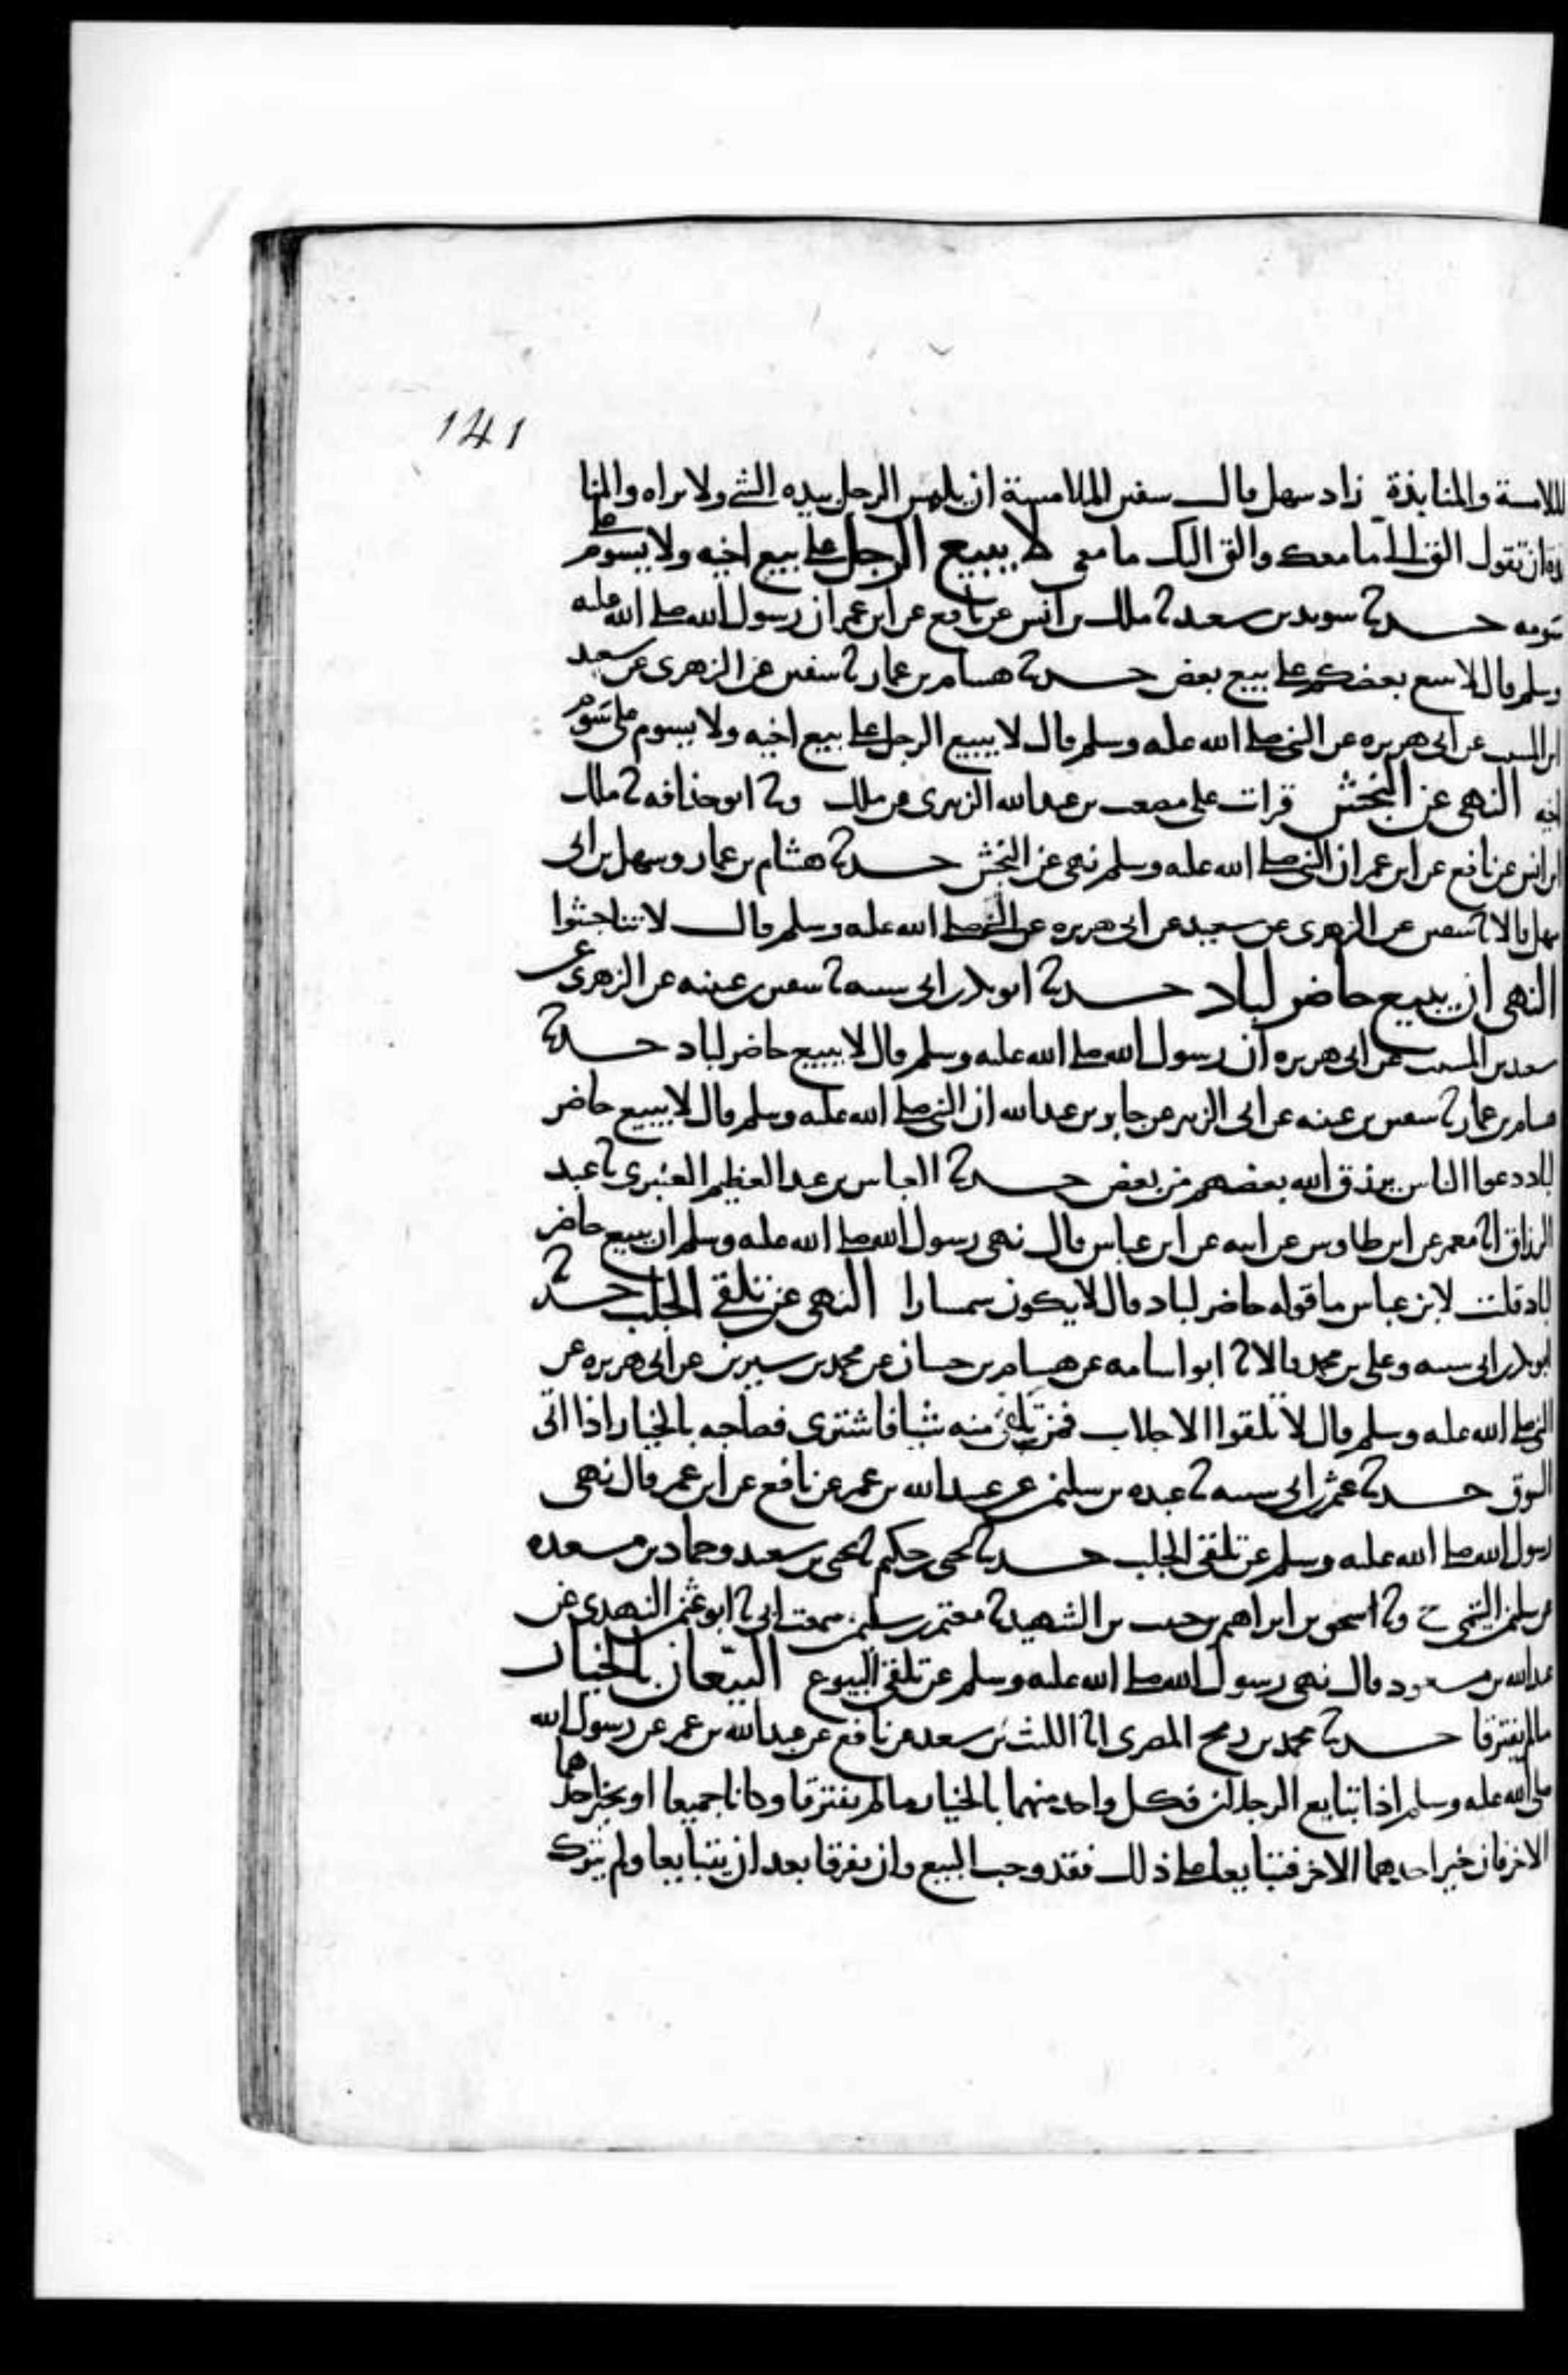 141
الملامسة والمنابذة زاد سهل قال سفين الملامسة ان يلمس الرجل بيده الشي ولا يراه والمنا
بذة ان تقول الق الى ما معك والقى اليك ما معي لا يبيع الرجل على بيع اخيه ولا يسوم على
سومه حدثنا سويد بن سعيد ثنا ملك بن انس عن نافع عن ابن عمر ان رسول الله صلى الله عليه
وسلم قال لا يبيع بعضكم على بيع بعض حدثنا هشام بن عمار ثنا سفين عن الزهرى عن سعيد
ابن المسيب عن ابى هريره عن النبي صلى الله عليه وسلم قال لا يبيع الرجل على بيع اخيه ولا يسوم على سوم
اخيه النهى عن النجش قرات على مصعب بن عبدالله الزبيرى عن ملك وثنا ابو حذافه ثنا ملك
ابن انس عن نافع عن ابن عمر ان النبي صلى الله عليه وسلم نهى عن النجش حدثنا هشام بن عمار وسهل بن ابى
سهل قالا ثنا سفين عن الزهرى عن سعيد عن ابى هريره عن النبي صلى الله عليه وسلم قال لا تناجشوا
النهى ان يبيع حاضر لباد حدثنا ابو بكر بن ابى شيبه ثنا سفين بن عيينه عن الزهرى عن
سعيد بن المسيب عن ابى هريره ان رسول الله صلى الله عليه وسلم قال لا يبيع حاضر لباد حدثنا
هشام بن عمار ثنا سفين بن عيينه عن ابى الزبير عن جابر بن عبدالله ان النبي صلى الله عليه وسلم قال لا يبيع حاضر
لباد دعوا الناس يرزق الله بعضهم من بعض حدثنا العباس بن عبد العظيم العنبرى ثنا عبد
الرزاق انا معمر عن ابن طاوس عن ابيه عن ابن عباس قال نهى رسول الله صلى الله عليه وسلم ان يبيع حاضر
لباد قلت لابن عباس ما قوله حاضر لباد قال لا يكون سمسارا النهى عن تلقي الجلب حدثنا
ابو بكر بن ابى شيبه وعلى بن محمد قالا ثنا ابو اسامه عن هشام بن حسان عن محمد بن سيرين عن ابى هريره عن
النبي صلى الله عليه وسلم قال لا تلقوا الاجلاب فمن تلقى منه شيا فاشترى فصاحبه بالخيار اذا اتى
السوق حدثنا عثمن بن ابى شيبه ثنا عبده بن سليمن عن عبيد الله بن عمر عن نافع عن ابن عمر قال نهى
رسول الله صلى الله عليه وسلم عن تلقى الجلب حدثنا يحيى بن حكيم ثنا يحيى بن سعيد وحماد بن مسعده
عن سليمن التيمي ح وثنا اسحق بن ابراهيم بن حبيب بن الشهيد ثنا معتمر بن سليمن سمعت ابى ثنا ابو عثمن النهدى عن
عبدالله بن مسعود قال نهى رسول الله صلى الله عليه وسلم عن تلقى البيوع البيعان بالخيار
ما لم يفترقا حدثنا محمد بن رمح المصرى انا الليث بن سعد عن نافع عن عبدالله بن عمر عن رسول الله
صلى الله عليه وسلم اذا تبايع الرجلان فكل واحد منهما بالخيار ما لم يفترقا وكانا جميعا او يخير احدهما
الاخر فان خير احدهما الاخر فتبايعا على ذلك فقد وجب البيع وان تفرقا بعد ان يتبايعا ولم يترك